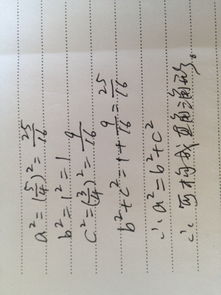 a² = (5/4)² = 25/16
b² = 1² = 1
c² = (3/4)² = 9/16
b² + c² = 1 + 9/16 = 25/16
∵ a² = b² + c²
∴ 可构成直角三角形。